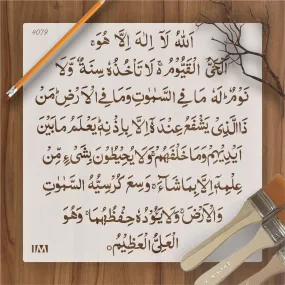 4079
اَللّٰهُ لَاۤ اِلٰهَ اِلَّا هُوَۚ
اَلْحَىُّ الْقَيُّوْمُ ۚ لَا تَاْخُذُهٗ سِنَةٌ وَّلَا
نَوْمٌ ؕ لَهٗ مَا فِى السَّمٰوٰتِ وَمَا فِى الْاَرْضِ ؕ مَنْ
ذَا الَّذِىْ يَشْفَعُ عِنْدَهٗۤ اِلَّا بِاِذْنِهٖ ؕ يَعْلَمُ مَا بَيْنَ
اَيْدِيْهِمْ وَمَا خَلْفَهُمْ ۚ وَلَا يُحِيْطُوْنَ بِشَىْءٍ مِّنْ
عِلْمِهٖۤ اِلَّا بِمَا شَآءَ ۚ وَسِعَ كُرْسِيُّهُ السَّمٰوٰتِ
وَالْاَرْضَ ۚ وَلَا يَـُٔوْدُهٗ حِفْظُهُمَا ۚ وَهُوَ
الْعَلِىُّ الْعَظِيْمُ
IM